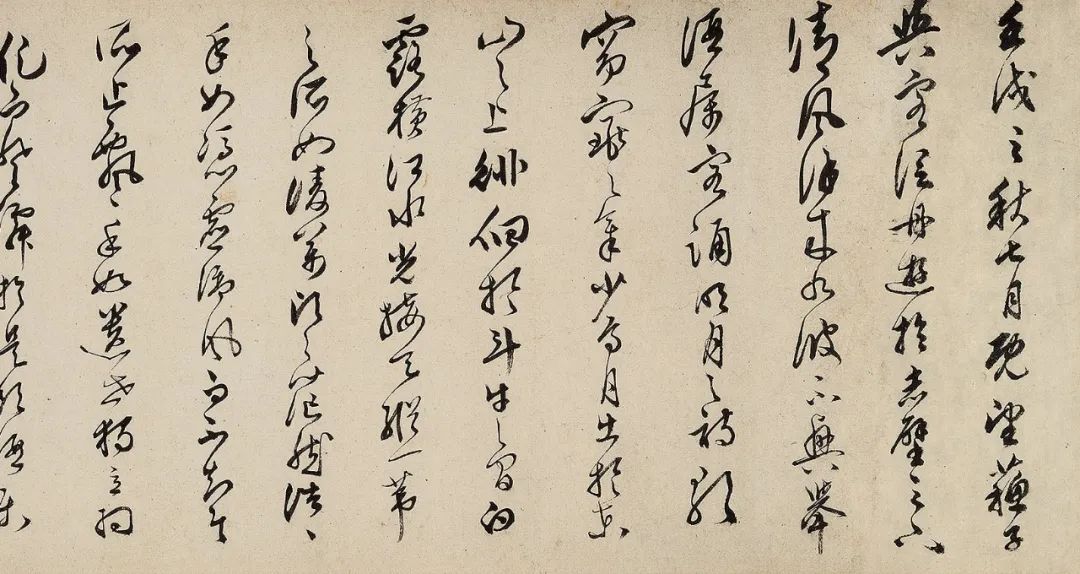 壬戌之秋七月既望蘇子
與客泛舟遊於赤壁之下
清風徐來水波不興舉
酒屬客誦明月之詩歌
窈窕之章少焉月出於東
山之上徘徊於斗牛之間白
露橫江水光接天縱一葦
之所如凌萬頃之茫然浩〻
乎如憑虛御風而不知其
所止飄〻乎如遺世獨立羽
化而登僊於是飲酒樂